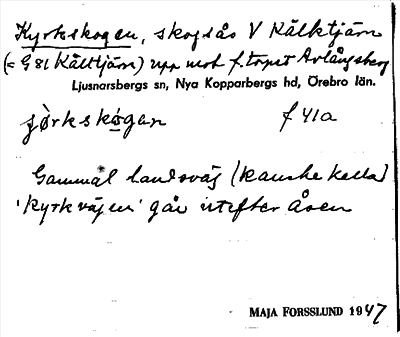 Kyrkskogen, skogsås V Kälktjärn
(= G 81 Kälktjärn) upp mot f. torpet Avlångsberg
Ljusnarsbergs sn, Nya Kopparbergs hd, Örebro län.
f 41a
Gammal landsväg (kanske kallad
'kyrkvägen' går utefter åsen
MAJA FORSSLUND 1947